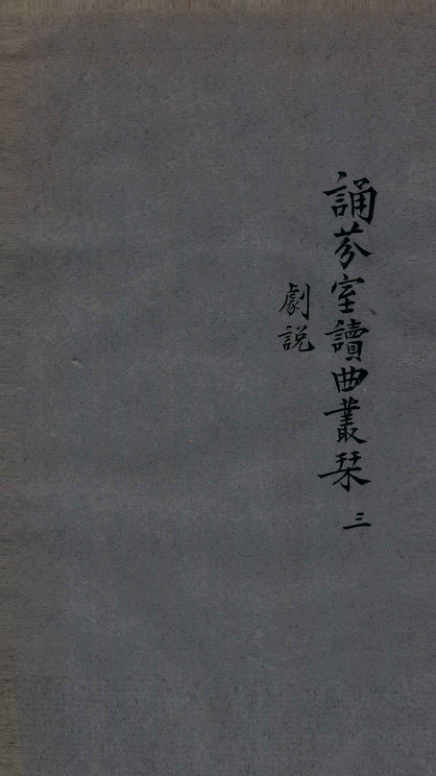 誦芬室讀曲叢栞 三
劇説